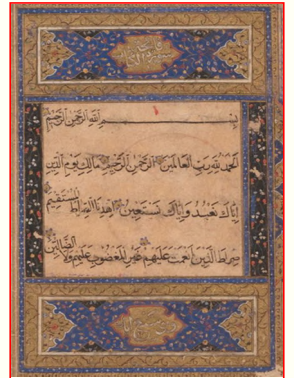 بسم الله الرحمن الرحيم
الحمد لله رب العالمين الرحمن الرحيم مالك يوم الدين
اياك نعبد واياك نستعين اهدنا الصراط المستقيم
صراط الذين انعمت عليهم غير المغضوب عليهم ولا الضالين